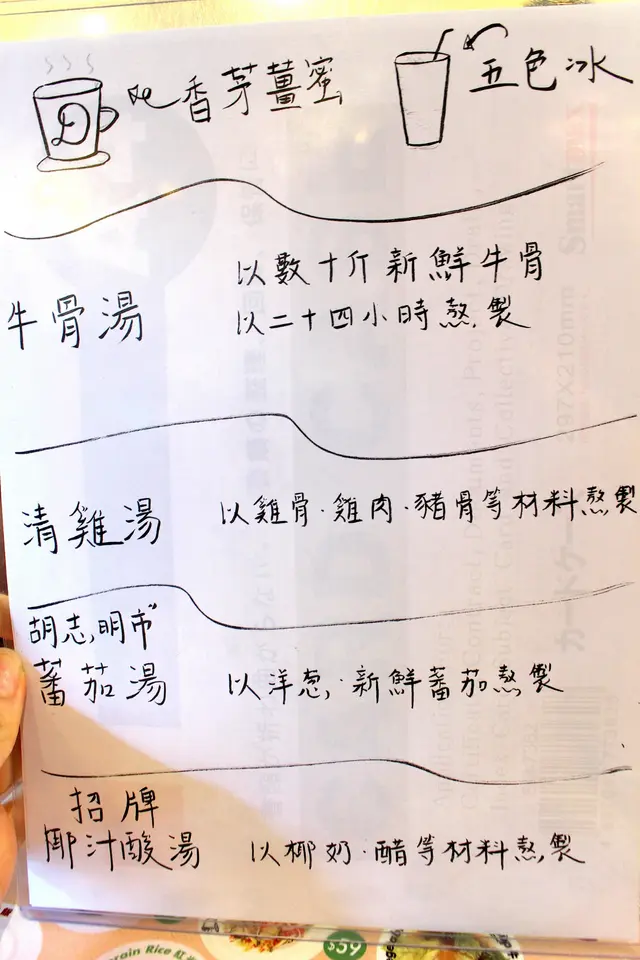 香茅薑蜜
五色冰
以數十斤新鮮牛骨
牛骨湯
以二十四小時熬製
清雞湯
以雞骨·雞肉·豬骨等材料熬製
胡志明市
蕃茄湯
以洋葱·新鮮蕃茄熬製
招牌
椰汁酸湯
以椰奶·醋等材料熬製
Smart
297X210mm
カードケース
rain Rice
$59